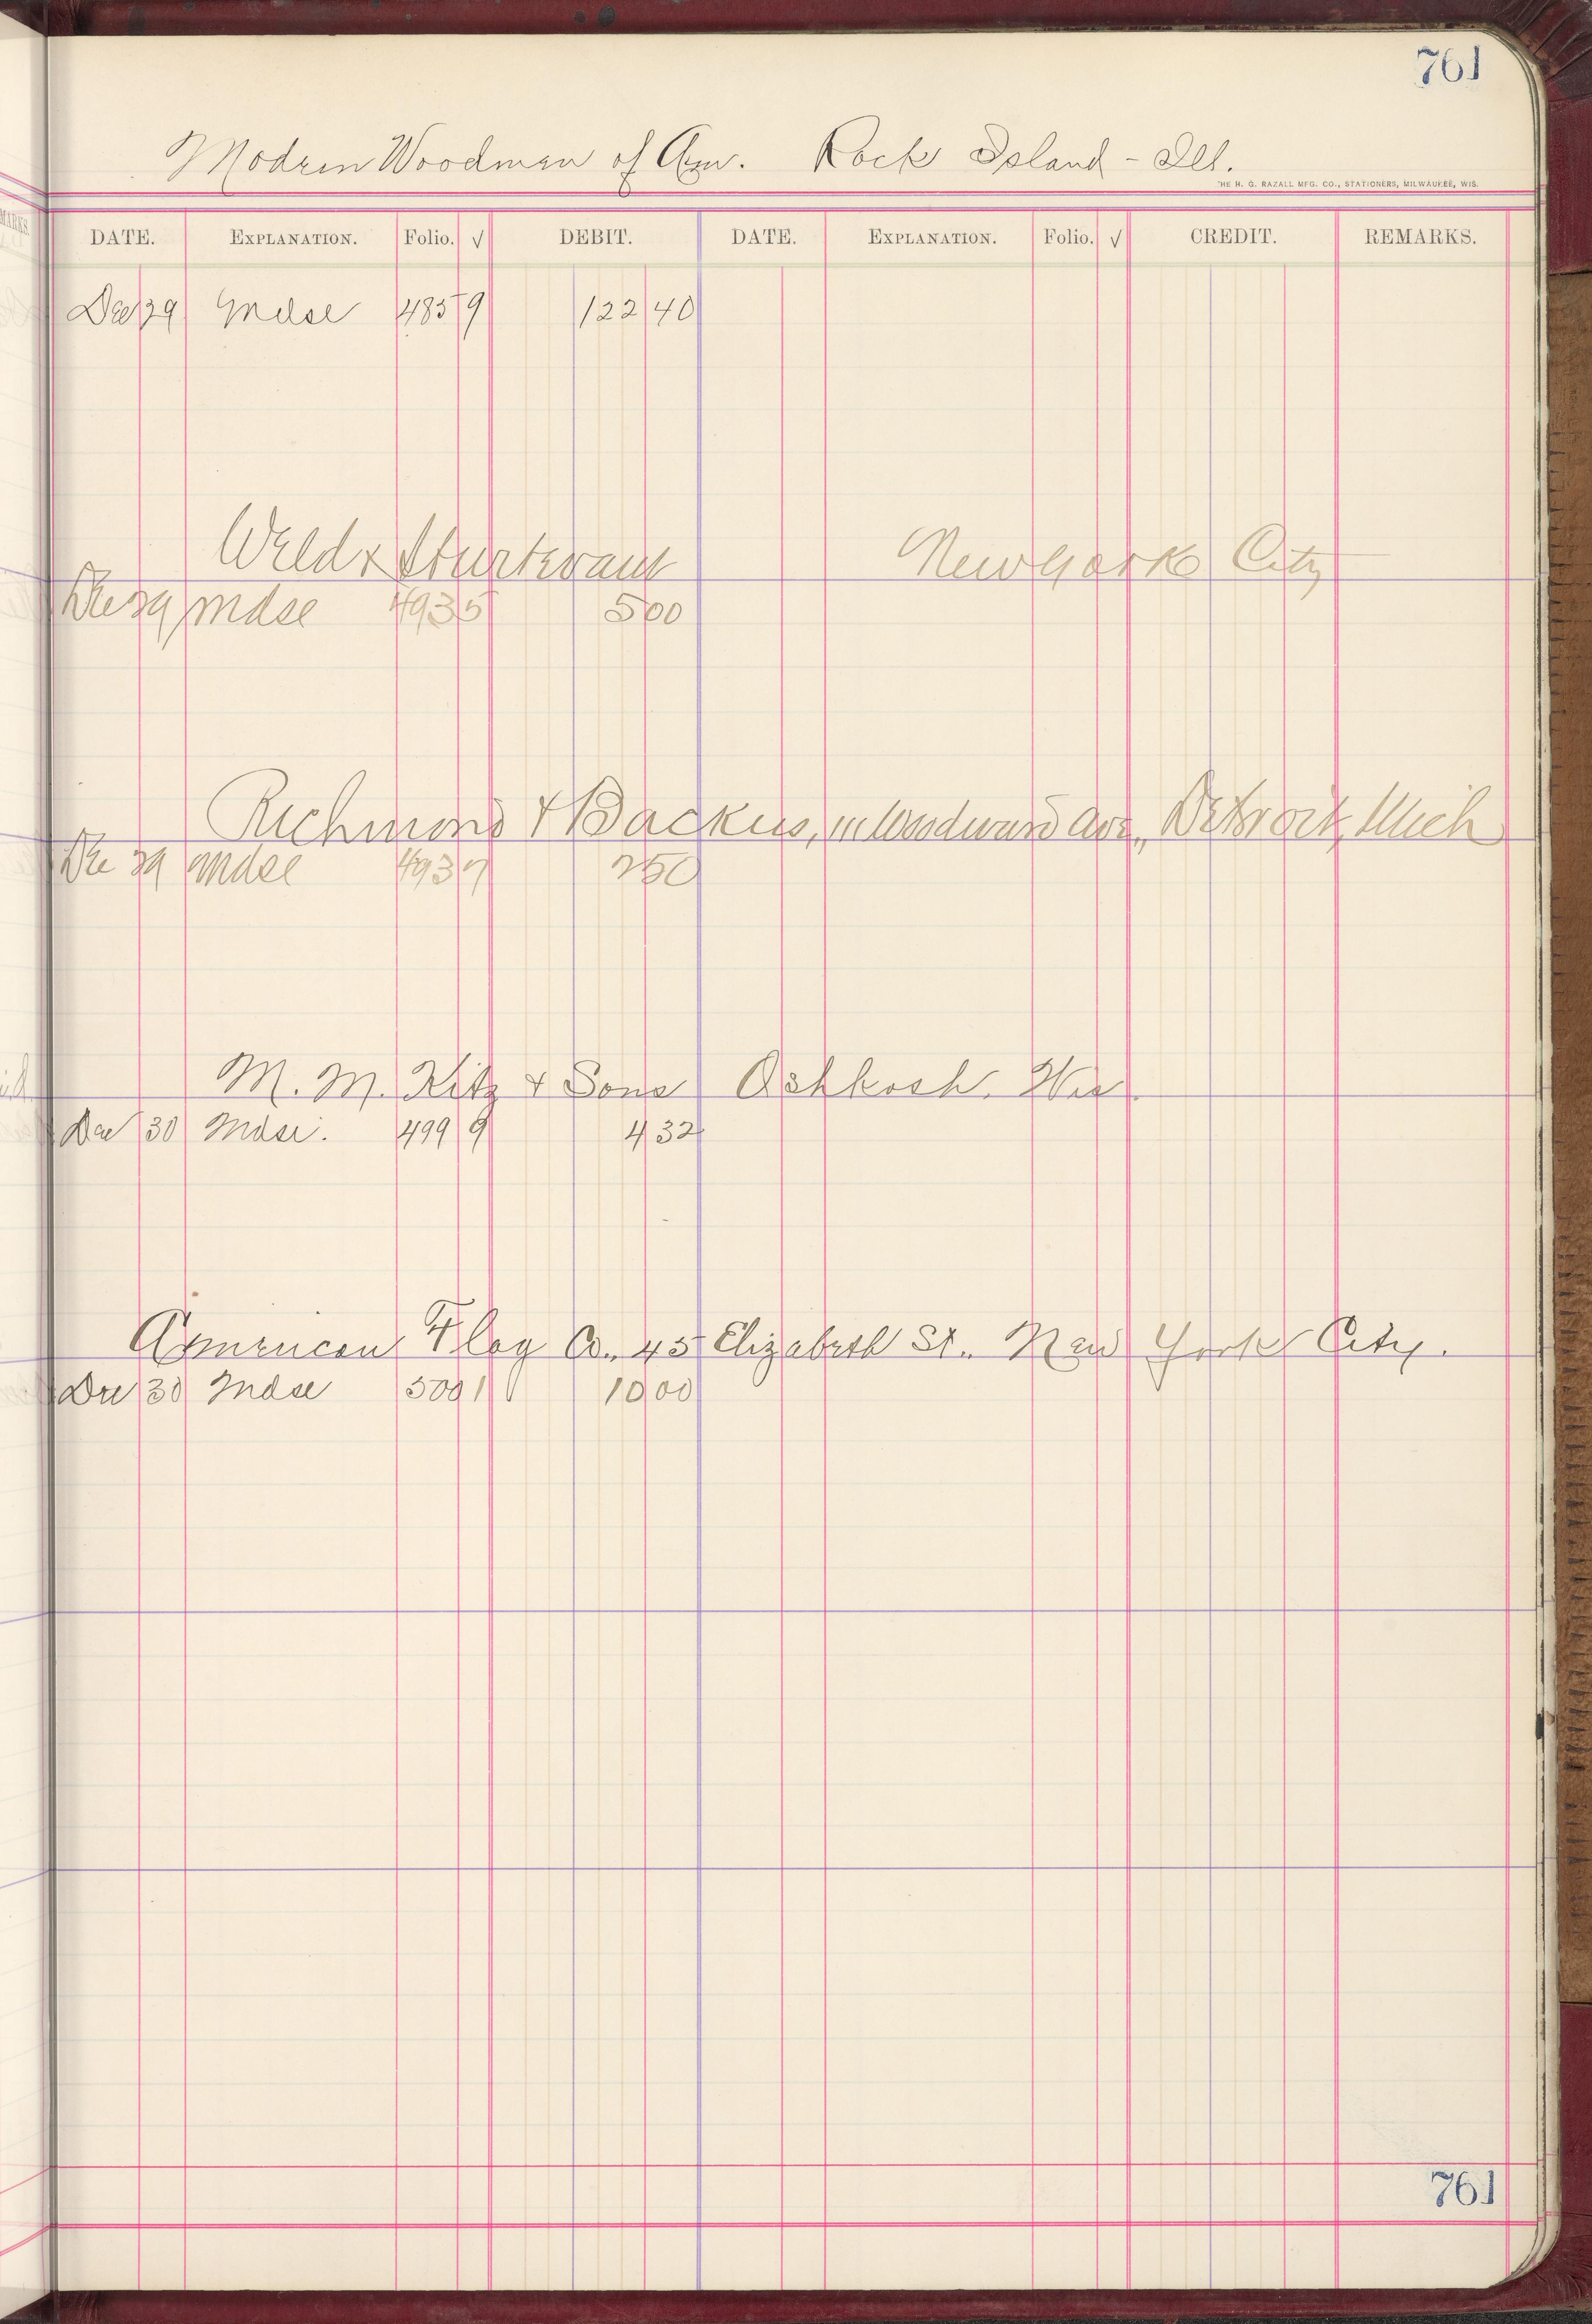 761
Modren Woodmen of Am. Rock Island - Ill.
THE H. G. RAZALL MFG. CO., STATIONERS, MILWAUKEE, WIS.
DATE. EXPLANATION. Folio. √ DEBIT. DATE. EXPLANATION. Folio. √ CREDIT. REMARKS.
Dec 29 Mdse 4859 122 40
Weld & Sturtevant New York City
Dec 29 Mdse 4935 5 00
Richmond & Backus, 111 Woodward Ave., Detroit, Mich
Dec 29 Mdse 4937 2 50
M. M. Kitz & Sons Oshkosh. Wis.
Dec 30 Mdse. 4999 4 32
American Flag Co., 45 Elizabeth St., New York City.
Dec 30 Mdse 5001 10 00
761